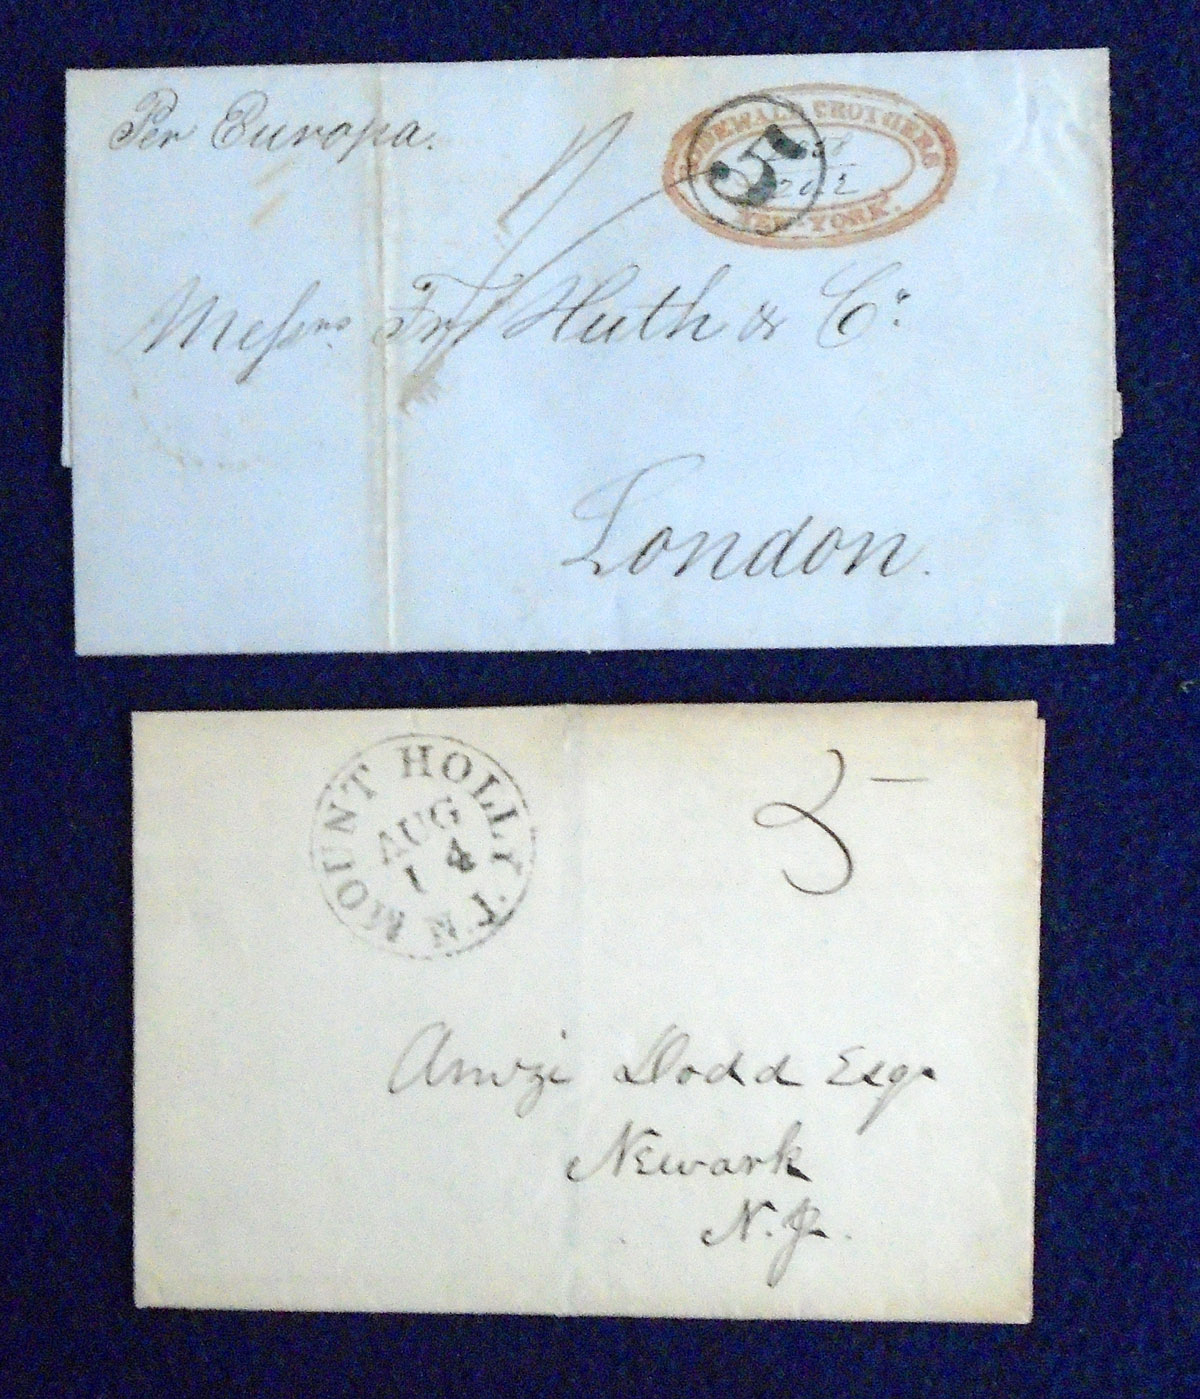 Per Europa.
BROTHERS
5
NEW-YORK.
Messrs. Fr. Huth & Co.
London.
MOUNT HOLLY N.J.
AUG
14
5
Amzi Dodd Esq.
Newark
N.J.